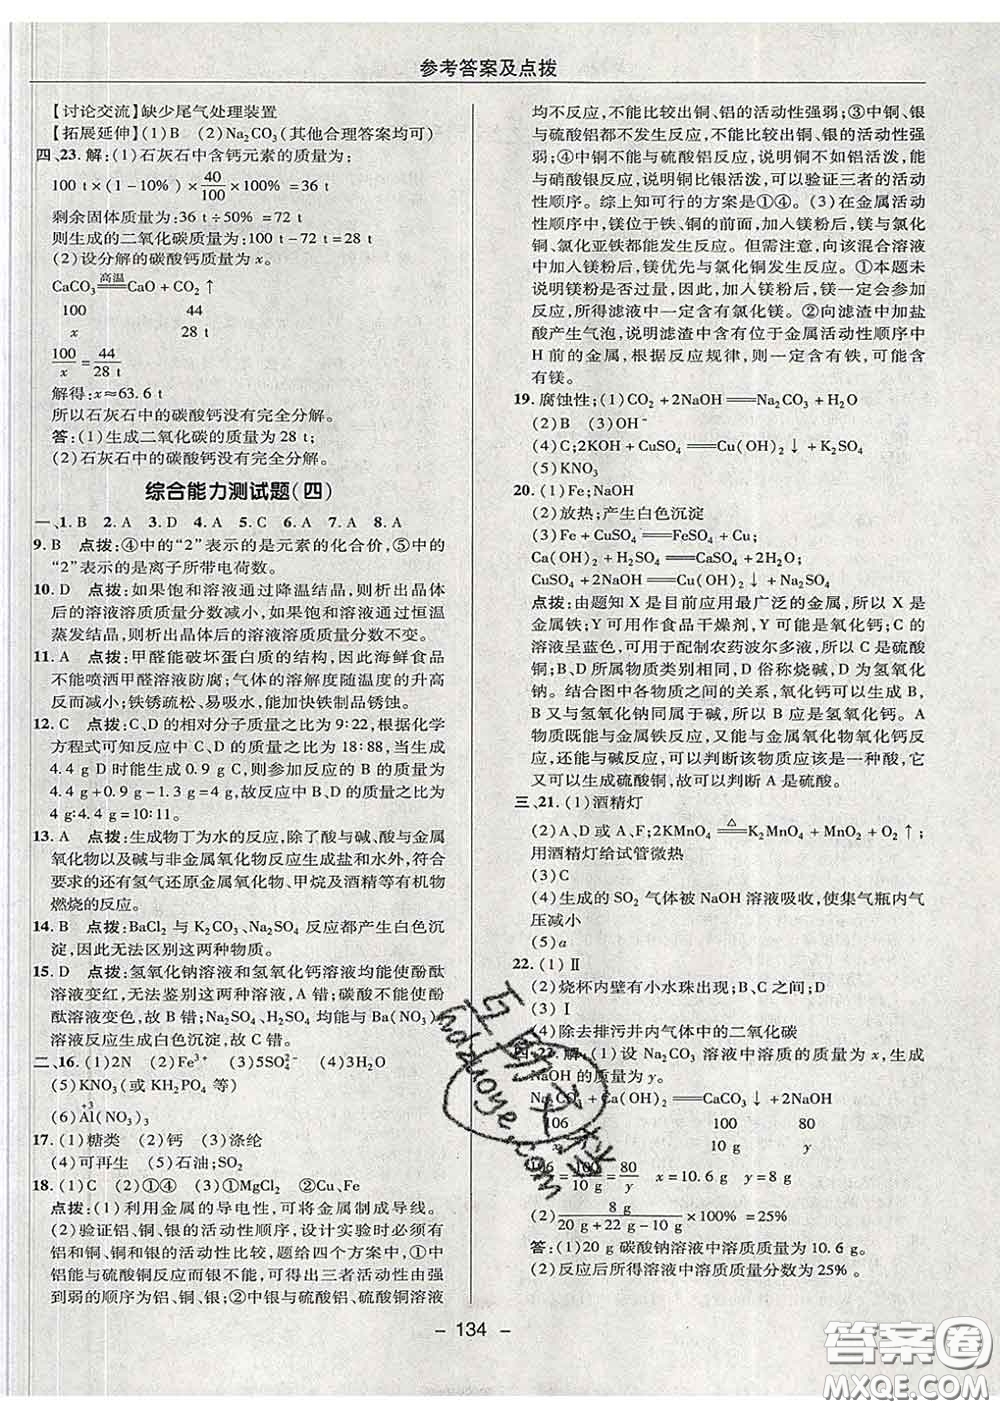 参考答案及点拨
【讨论交流】缺少尾气处理装置
【拓展延伸】(1)B (2)Na₂CO₃(其他合理答案均可)
四、23. 解:(1)石灰石中含钙元素的质量为:
100 t×(1-10%)×40/100×100%=36 t
剩余固体质量为:36 t÷50%=72 t
则生成的二氧化碳质量为:100 t-72 t=28 t
(2)设分解的碳酸钙质量为 x。
CaCO₃ 高温═ CaO+CO₂↑
100 44
x 28 t
100/x=44/28 t
解得:x≈63.6 t
所以石灰石中的碳酸钙没有完全分解。
答:(1)生成二氧化碳的质量为28 t;
(2)石灰石中的碳酸钙没有完全分解。
综合能力测试题(四)
一、1. B 2. A 3. D 4. A 5. C 6. A 7. A 8. A
9. B 点拨:④中的“2”表示的是元素的化合价,⑤中的
“2”表示的是离子所带电荷数。
10. D 点拨:如果饱和溶液通过降温结晶,则析出晶体
后的溶液溶质质量分数减小,如果饱和溶液通过恒温
蒸发结晶,则析出晶体后的溶液溶质质量分数不变。
11. A 点拨:甲醛能破坏蛋白质的结构,因此海鲜食品
不能喷洒甲醛溶液防腐;气体的溶解度随温度的升高
反而减小;铁锈疏松、易吸水,能加快铁制品锈蚀。
12. C 点拨:C、D的相对分子质量之比为9:22,根据化学
方程式可知反应中C、D的质量之比为18:88,当生成
4.4 g D时能生成0.9 g C,则参加反应的B的质量为
4.4 g+0.9 g-1.3 g=4 g,故反应中B、D的质量比为
4 g:4.4 g=10:11。
13. A 点拨:生成物丁为水的反应,除了酸与碱、酸与金属
氧化物以及碱与非金属氧化物反应生成盐和水外,符合
要求的还有氢气还原金属氧化物、甲烷及酒精等有机物
燃烧的反应。
14. B 点拨:BaCl₂与K₂CO₃、Na₂SO₄反应都产生白色沉
淀,因此无法区别这两种物质。
15. D 点拨:氢氧化钠溶液和氢氧化钙溶液均能使酚酞
溶液变红,无法鉴别这两种溶液,A错;碳酸不能使酚
酞溶液变色,故B错;Na₂SO₄、H₂SO₄均能与Ba(NO₃)₂
溶液反应生成白色沉淀,故C错。
二、16. (1)2N (2)Fe³⁺ (3)5SO₄²⁻ (4)3H₂O
(5)KNO₃(或KH₂PO₄等)
(6)Al(+3)(NO₃)₃
17. (1)糖类 (2)钙 (3)涤纶
(4)可再生 (5)石油;SO₂
18. (1)C (2)①④ (3)①MgCl₂ ②Cu、Fe
点拨:(1)利用金属的导电性,可将金属制成导线。
(2)验证铝、铜、银的活动性顺序,设计实验时必须有
铝和铜、铜和银的活动性比较,题给四个方案中,①中
铝能与硫酸铜反应而银不能,可得出三者活动性由强
到弱的顺序为铝、铜、银;②中银与硫酸铝、硫酸铜溶液
均不反应,不能比较出铜、铝的活动性强弱;③中铜、银
与硫酸铝都不发生反应,不能比较铜、银的活动性强
弱;④中铜不能与硫酸铝反应,说明铜不如铝活泼,能
与硝酸银反应,说明铜比银活泼,可以验证三者的活动
性顺序。综上知可行的方案是①④。(3)在金属活动
性顺序中,镁位于铁、铜的前面,加入镁粉后,镁与氯化
铜、氯化亚铁都能发生反应。但需注意,向该混合溶液
中加入镁粉后,镁优先与氯化铜发生反应。①本题未
说明镁粉是否过量,因此,加入镁粉后,镁一定会参加
反应,所得滤液中一定含有氯化镁。②向滤渣中加盐
酸产生气泡,说明滤渣中含有位于金属活动性顺序中
H前的金属,根据反应规律,则一定含有铁,可能含
有镁。
19. 腐蚀性;(1)CO₂+2NaOH═Na₂CO₃+H₂O
(2)B (3)OH⁻
(4)C;2KOH+CuSO₄═Cu(OH)₂↓+K₂SO₄
(5)KNO₃
20. (1)Fe;NaOH
(2)放热;产生白色沉淀
(3)Fe+CuSO₄═FeSO₄+Cu;
Ca(OH)₂+H₂SO₄═CaSO₄+2H₂O;
CuSO₄+2NaOH═Cu(OH)₂↓+Na₂SO₄
点拨:由题知X是目前应用最广泛的金属,所以X是
金属铁;Y可用作食品干燥剂,Y可能是氧化钙;C的
溶液呈蓝色,可用于配制农药波尔多液,所以C是硫酸
铜;B与D所属物质类别相同,D俗称烧碱,D为氢氧化
钠。结合图中各物质之间的关系,氧化钙可以生成B,
B又与氢氧化钠同属于碱,所以B应是氢氧化钙。A
物质既能与金属铁反应,又能与金属氧化物氧化钙反
应,还能与碱反应,可以判断该物质应该是一种酸,它
又可以生成硫酸铜,故可以判断A是硫酸。
三、21. (1)酒精灯
(2)A、D或A、F;2KMnO₄ △═ K₂MnO₄+MnO₂+O₂↑;
用酒精灯给试管微热
(3)C
(4)生成的SO₂气体被NaOH溶液吸收,使集气瓶内气
压减小
(5)a
22. (1)Ⅱ
(2)烧杯内壁有小水珠出现;B、C之间;D
(3)Ⅰ
(4)除去排污井内气体中的二氧化碳
四、23. 解:(1)设Na₂CO₃溶液中溶质的质量为x,生成
NaOH的质量为y。
Na₂CO₃+Ca(OH)₂═CaCO₃↓+2NaOH
106 100 80
x 10 g y
106/x=100/10 g=80/y x=10.6 g y=8 g
(2)8 g/(20 g+22 g-10 g)×100%=25%
答:(1)20 g碳酸钠溶液中溶质质量为10.6 g。
(2)反应后所得溶液中溶质质量分数为25%。
- 134 -
答案圈
MXQE.COM